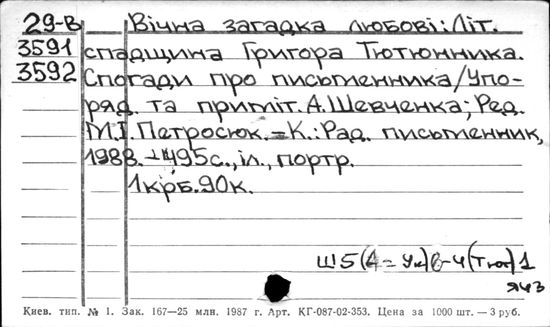 29-В Вічна загадка любові: Літ.
3591 спадщина Григора Тютюнника.
3592 Спогади про письменника/Упо-
ряд. та приміт. А. Шевченка; Ред.
М.І. Петросюк. — К.: Рад. письменник,
1988. — 495 с., іл., портр.
1 крб. 90 к.
Ш5(4=Ук)6-4(Тют)1
ЯЧЗ
Киев. тип. № 1. Зак. 167—25 млн. 1987 г. Арт. КГ-087-02-353. Цена за 1000 шт. — 3 руб.